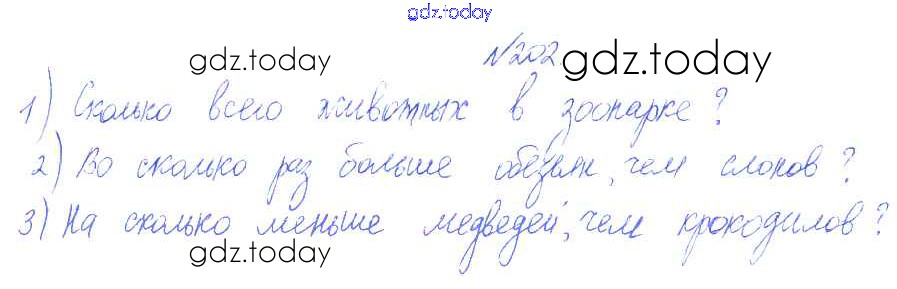 gdz.today
gdz.today №202. gdz.today
1) Сколько всего животных в зоопарке?
2) Во сколько раз больше обезьян, чем слонов?
3) На сколько меньше медведей, чем крокодилов?
gdz.today gdz.today